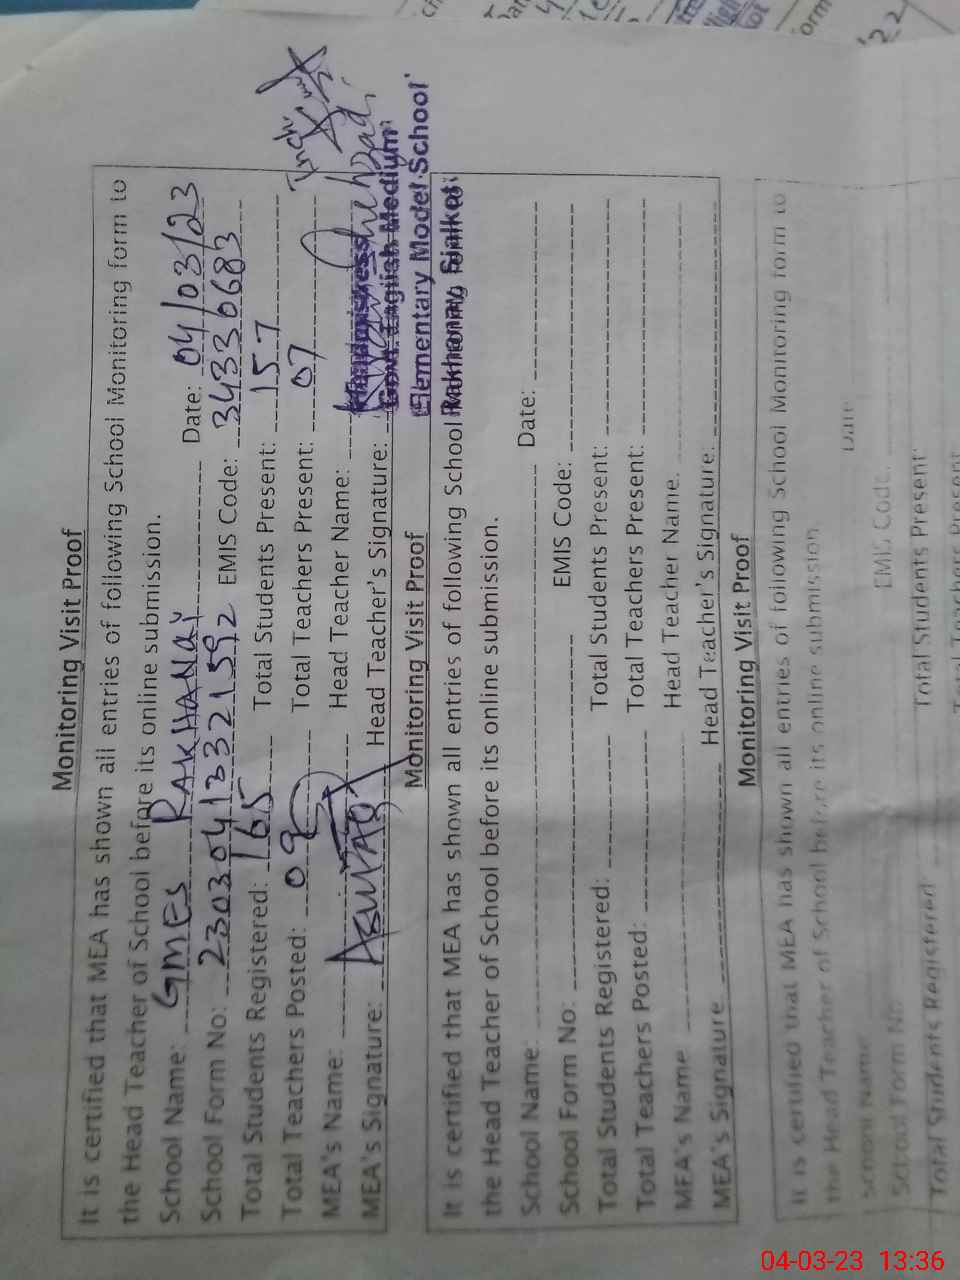 Monitoring Visit Proof
It is certified that MEA has shown all entries of following School Monitoring form to
the Head Teacher of School before its online submission.
School Name: GMES RAKHANAY Date: 04/03/23
School Form No: 230304133332 EMIS Code: 34330683
Total Students Registered: 165 Total Students Present: 157
Total Teachers Posted: 09 Total Teachers Present: 07
MEA's Name: Head Teacher Name:
MEA's Signature: Head Teacher's Signature:
Headmistress
Govt. English Medium
Elementary Model School
Rakhanay, Sialkot
Monitoring Visit Proof
It is certified that MEA has shown all entries of following School Monitoring form to
the Head Teacher of School before its online submission.
School Name: Date:
School Form No: EMIS Code:
Total Students Registered: Total Students Present:
Total Teachers Posted: Total Teachers Present:
MEA's Name Head Teacher Name.
MEA's Signature Head Teacher's Signature:
Monitoring Visit Proof
It is certified that MEA has shown all entries of following School Monitoring form to
the Head Teacher of School before its online submission.
School Name Date
School Form No: EMIS Code.
Total Students Registered: Total Students Present:
Total Teachers Present
04-03-23 13:36